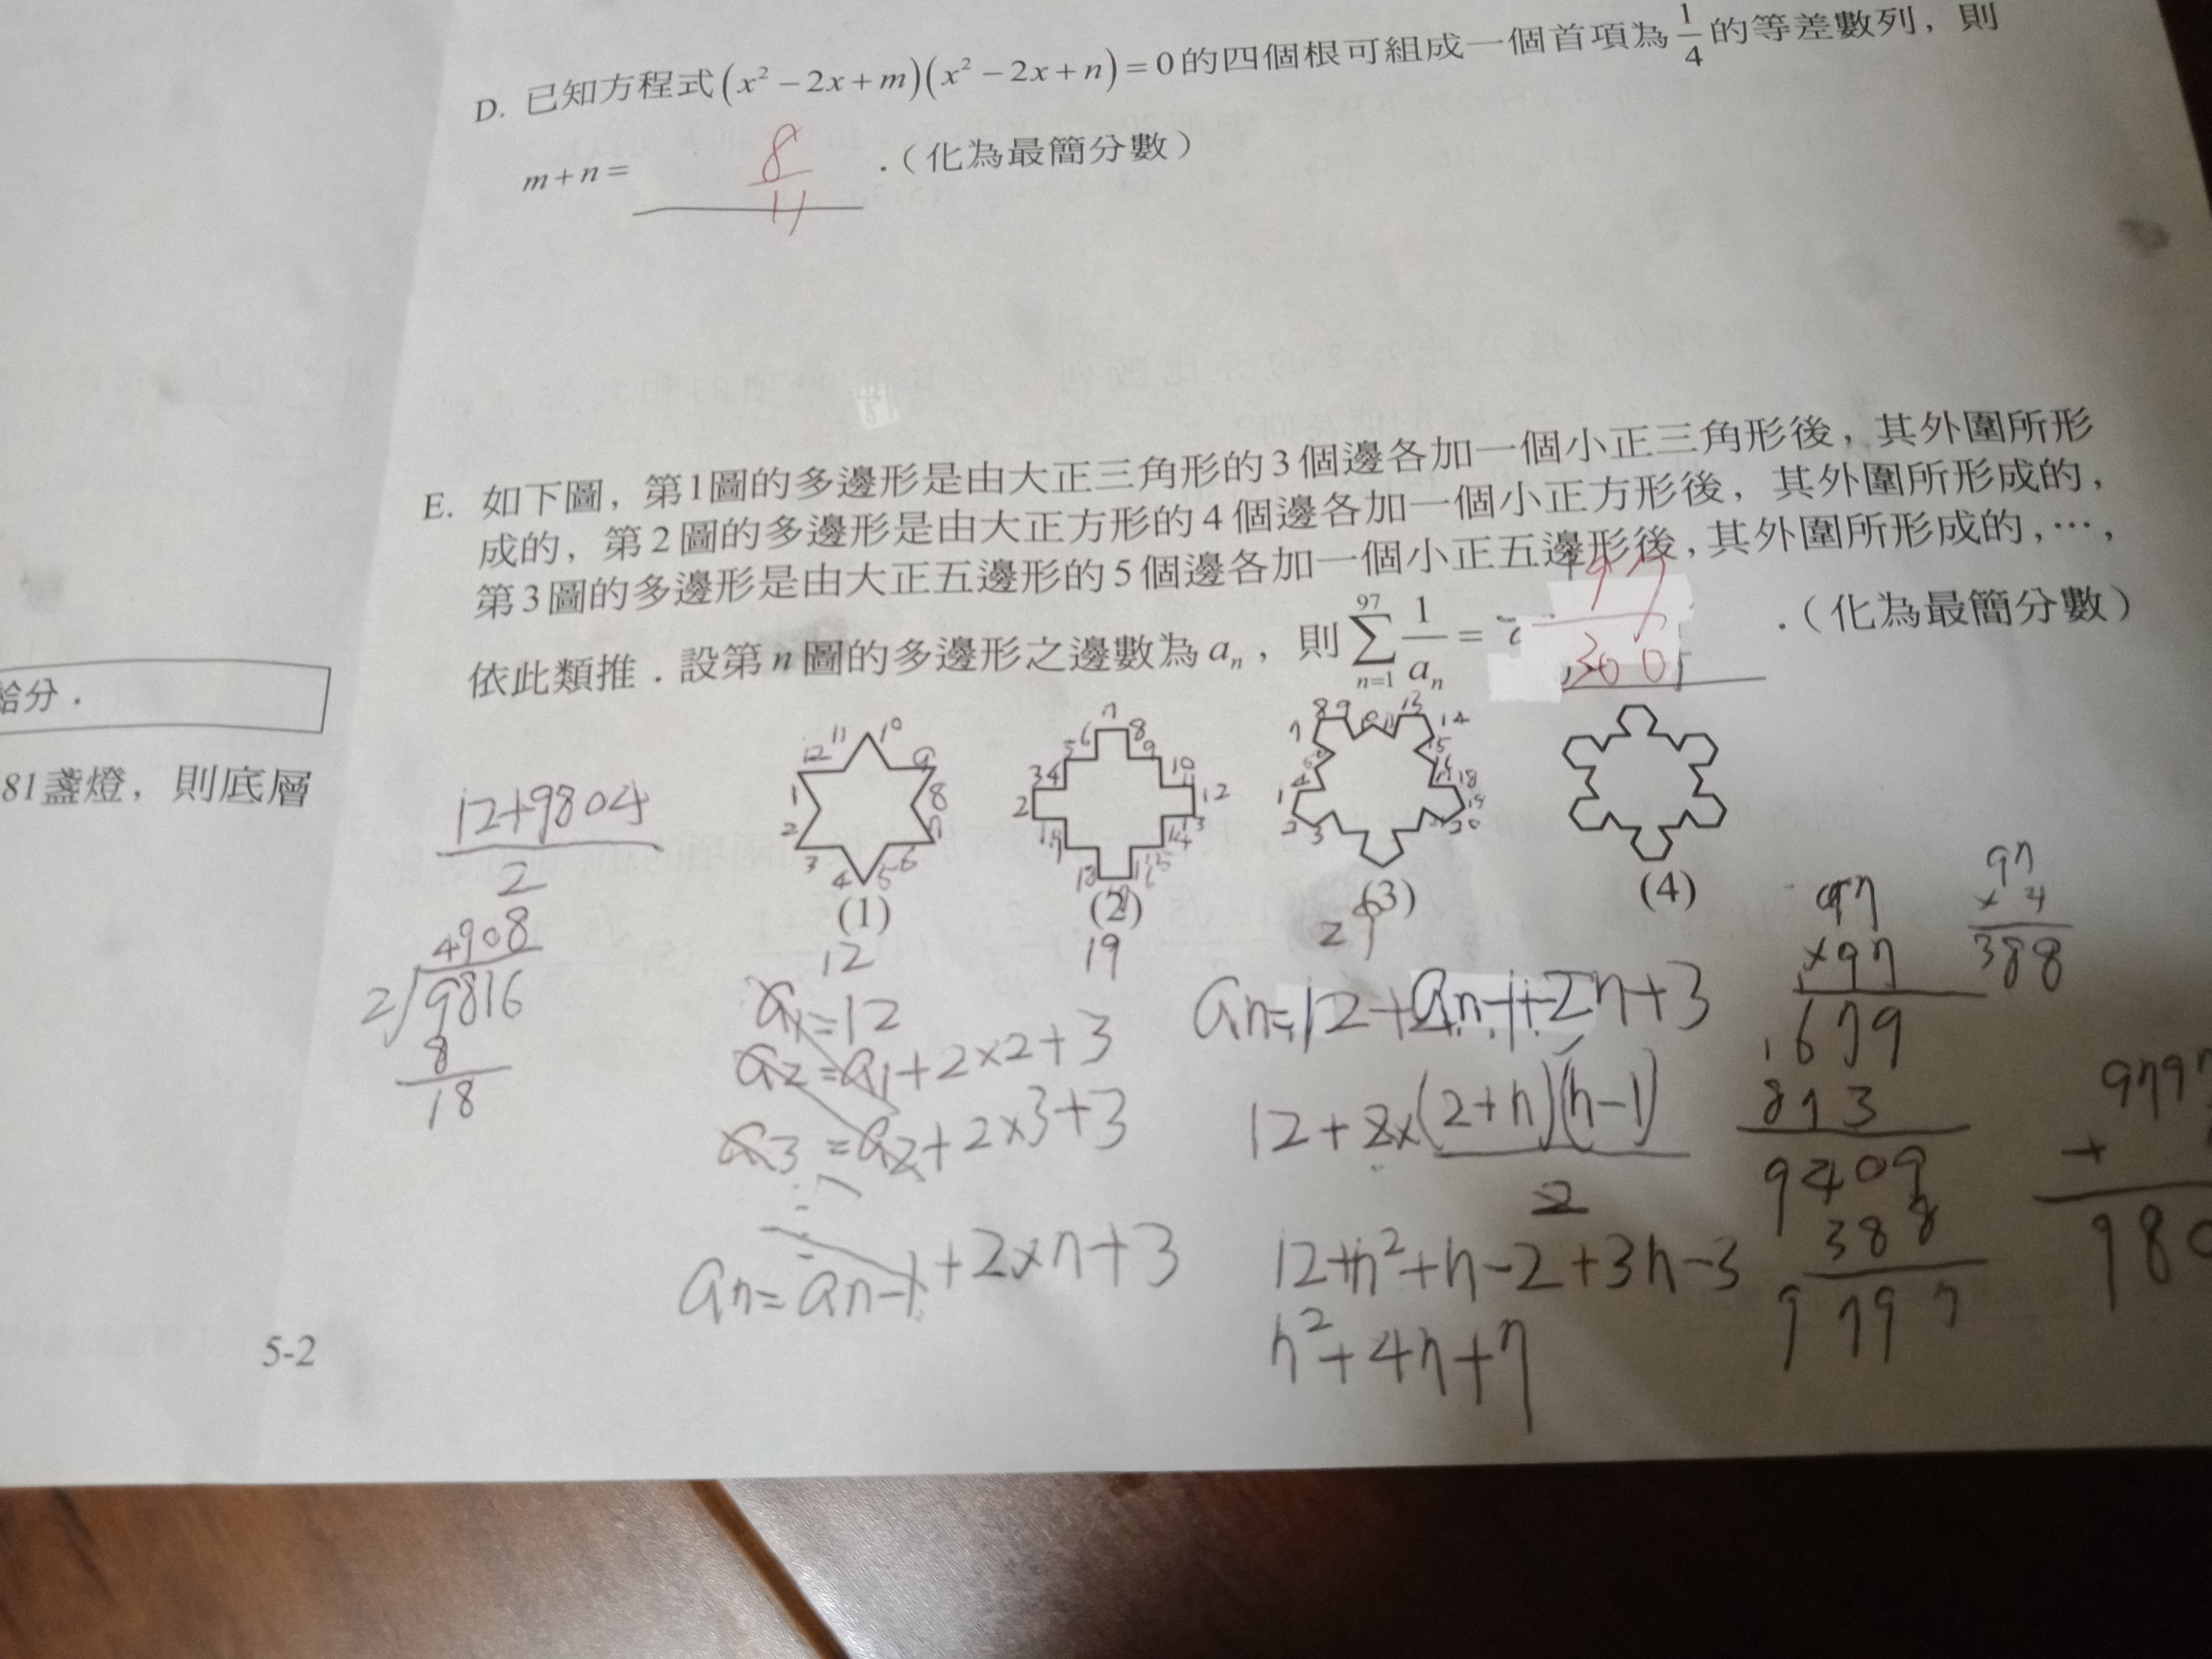 D. 已知方程式(x² − 2x + m)(x² − 2x + n) = 0的四個根可組成一個首項為1/4的等差數列，則
m + n = 8/11 .（化為最簡分數）
E. 如下圖，第1圖的多邊形是由大正三角形的3個邊各加一個小正三角形後，其外圍所形
成的，第2圖的多邊形是由大正方形的4個邊各加一個小正方形後，其外圍所形成的，
第3圖的多邊形是由大正五邊形的5個邊各加一個小正五邊形後，其外圍所形成的，…，
依此類推．設第n圖的多邊形之邊數為aₙ，則 97 ∑ n=1 1/aₙ = 97/300 .（化為最簡分數）
給分．
81盞燈，則底層
(1) (2) (3) (4)
12 19
12+9804
2
4908
2 9816
8
18
a1=12
a2=a1+2×2+3
a3=a2+2×3+3
an=an-1+2×n+3
an=12+an-1+2n+3
12+2×(2+n)(n-1)
2
12+n²+n-2+3n-3
n²+4n+7
97
×97
679
873
9409
388
9797
97
× 4
388
5-2